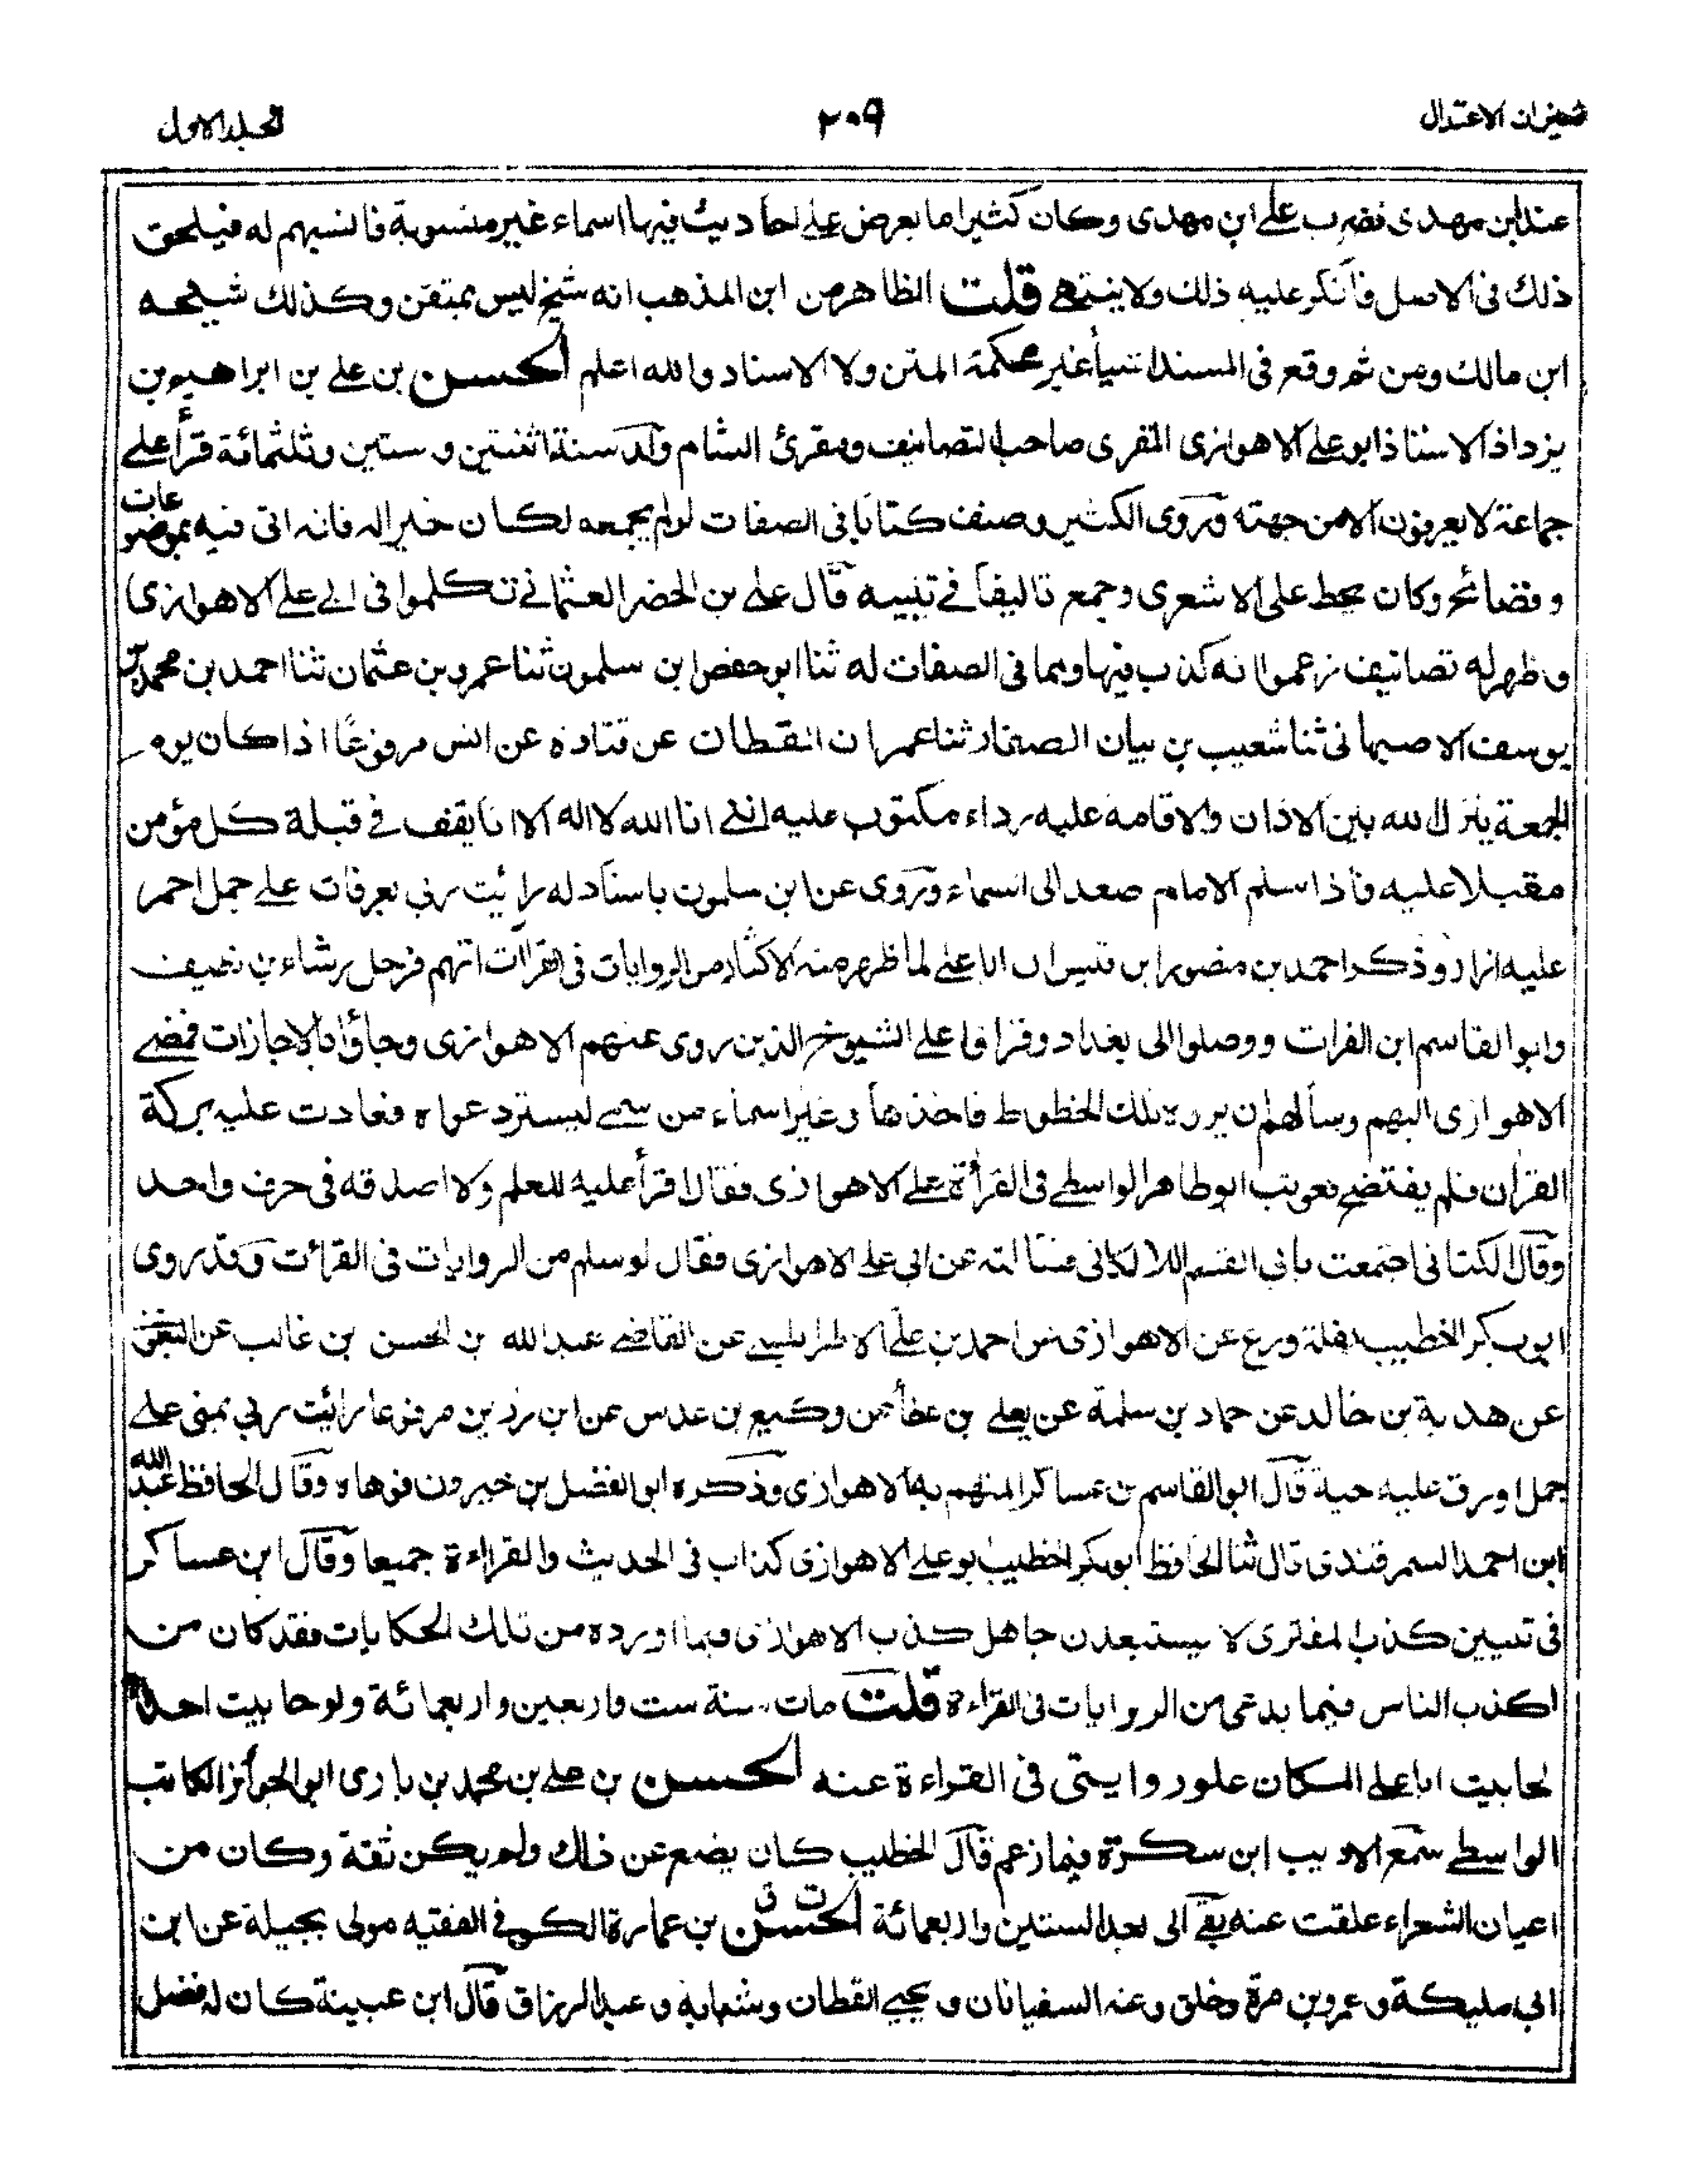 ميزان الاعتدال
٢٠٩
المجلد الاول
عند ابن مهدى فضرب على ابن مهدى وكان كثيرا ما يعرض على احاديث فيها اسماء غير منسوبة فانسبهم له فيلحق
ذلك فى الاصل فأنكر عليه ذلك ولا ينتهى قلت الظاهر من ابن المذهب انه شيخ ليس بمتقن وكذلك شيخه
ابن مالك ومن ثم وقع فى المسند اشياء غير محكمة المتن ولا الاسناد والله اعلم الحسن بن على بن ابراهيم بن
يزداذ الاستاذ ابو على الاهوازى المقرى صاحب التصانيف ومقرئ الشام ولد سنة اثنتين وستين وثلثمائة قرأ على
جماعة لا يعرفون الا من جهته وروى الكثير وصنف كتابا فى الصفات لو لم يجمعه لكان خيرا له فانه اتى فيه بموضوعات
و فضائح وكان يحط على الاشعرى وجمع تاليفا فى ثلبه قال على بن الخضر العثمانى تكلموا فى ابى على الاهوازى
وظهر له تصانيف زعموا انه كذب فيها ومما فى الصفات له ثنا ابو حفص ابن سلمون ثنا عمرو بن عثمان ثنا احمد بن محمد بن
يوسف الاصبهانى ثنا شعيب بن بيان الصفار ثنا عمران القطان عن قتادة عن انس مرفوعًا اذا كان يوم
الجمعة ينزل الله بين الاذان والاقامة عليه رداء مكتوب عليه اننى انا الله لا اله الا انا يقف فى قبلة كل مؤمن
مقبلا عليه فاذا سلم الامام صعد الى السماء وروى عن ابن سلمون باسناد له رأيت ربى بعرفات على جمل احمر
عليه ازار وذكر احمد بن منصور ابن قبيس ان ابا على لما ظهر منه الاكثار من الروايات فى القراات اتهم فرحل رشاء بن نظيف
وابو القاسم ابن الفرات ووصلوا الى بغداد وقرأوا على الشيوخ الذين روى عنهم الاهوازى وجاؤا بالاجازات فمضى
الاهوازى اليهم وسألهم ان يروه تلك الخطوط فاخذها وغير اسماء من سمى ليستر دعواه فعادت عليه بركة
القرآن فلم يفتضح فعوتب ابو طاهر الواسطى فى القرأة على الاهوازى فقال اقرأ عليه للعلم ولا اصدقه فى حرف واحد
وقال الكتانى اجتمعت بابى القسم اللالكائى فسألته عن ابى على الاهوازى فقال لو سلم من الروايات فى القرائت وقد روى
ابو بكر الخطيب بقلة ورع عن الاهوازى عن احمد بن على الاطرابلسى عن القاضى عبد الله بن الحسن بن غالب عن البغوى
عن هدبة بن خالد عن حماد بن سلمة عن يعلى بن عطأ عن وكيع بن عدس عن ابى رزين مرفوعا رائيت ربى بمنى على
جمل اورق عليه جبة قال ابو القاسم بن عساكر المتهم به الاهوازى وذكره ابو الفضل بن خيرون فوهاه وقال الحافظ عبد الله
ابن احمد السمرقندى قال ثنا الحافظ ابو بكر الخطيب ابو على الاهوازى كذاب فى الحديث والقراءة جميعا وقال ابن عساكر
فى تبيين كذب المفترى لا يستبعدن جاهل كذب الاهوازى فيما اورده من تلك الحكايات فقد كان من
اكذب الناس فيما يدعى من الروايات فى القراءة قلت مات سنة ست واربعين واربعمائة ولو حابيت احدا
لحابيت ابا على لمكان علو روايتى فى القراءة عنه الحسن بن على بن محمد بن بارى ابو الجوائز الكاتب
الواسطى سمع الاديب ابن سكرة فيما زعم قال الخطيب كان يضع عن ذلك ولم يكن ثقة وكان من
اعيان الشعراء علقت عنه بقى الى بعد الستين واربعمائة الحسن ت ق بن عمارة الكوفى الفقيه مولى بجيلة عن ابن
ابى مليكة وعمرو بن مرة وخلق وعنه السفيانان و يحيى القطان وشبابة و عبد الرزاق قال ابن عيينة كان له فضل